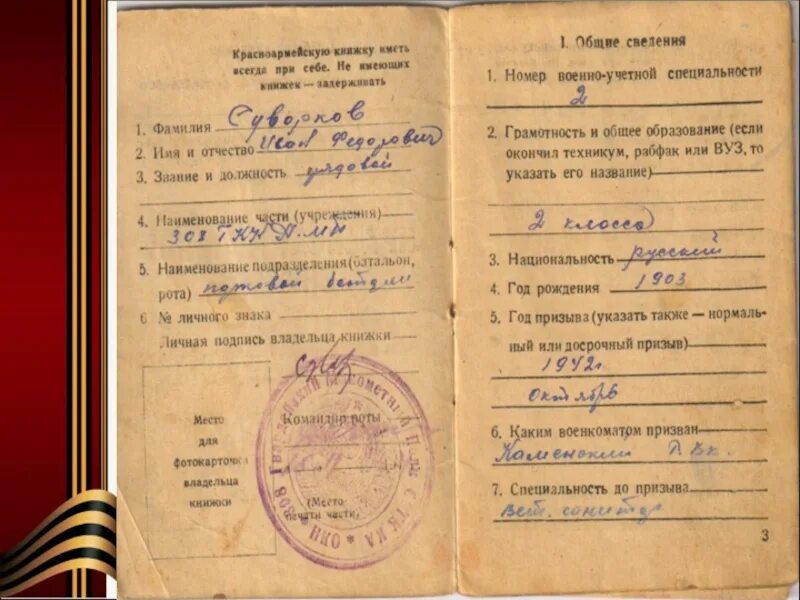 Красноармейскую книжку иметь
всегда при себе. Не имеющих
книжек — задерживать
1. Фамилия Суворков
2. Имя и отчество Иван Федорович
3. Звание и должность рядовой
4. Наименование части (учреждения)
308
5. Наименование подразделения (батальон,
рота)
6 № личного знака
Личная подпись владельца книжки
Место
для
фотокарточки
владельца
книжки
Командир роты
(Место
печати части)
I. Общие сведения
1. Номер военно-учетной специальности
2
2. Грамотность и общее образование (если
окончил техникум, рабфак или ВУЗ, то
указать его название)
2 класса
3. Национальность русский
4. Год рождения 1903
5. Год призыва (указать также — нормаль-
ный или досрочный призыв)
1942г.
Октябрь
6. Каким военкоматом призван
Каменский
7. Специальность до призыва
Вет. санитар
3